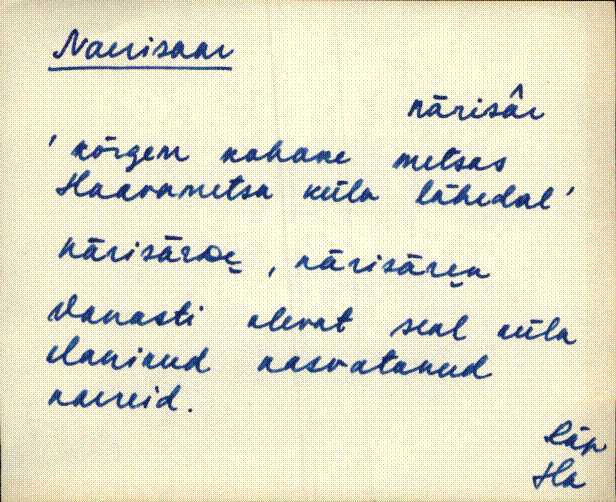 Naerisaar
närisâr
'kõrgem kohake metsas
Haavametsa küla lähedal'
närisāroe̬, närisāre̬n
Vanasti olevat seal küla
elanikud kasvatanud
naereid.
Räp
Ha